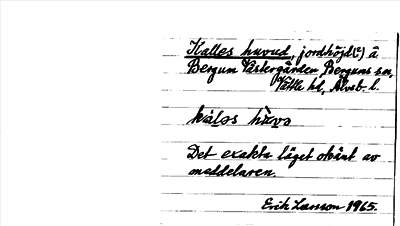 Kalles huvud, jordhöjd(?) å
Bergum Västergården, Bergums sn,
Vättle hd, Älvsb. l.
kàləs hʉ̀və
Det exakta läget okänt av
meddelaren.
Erik Larsson 1965.